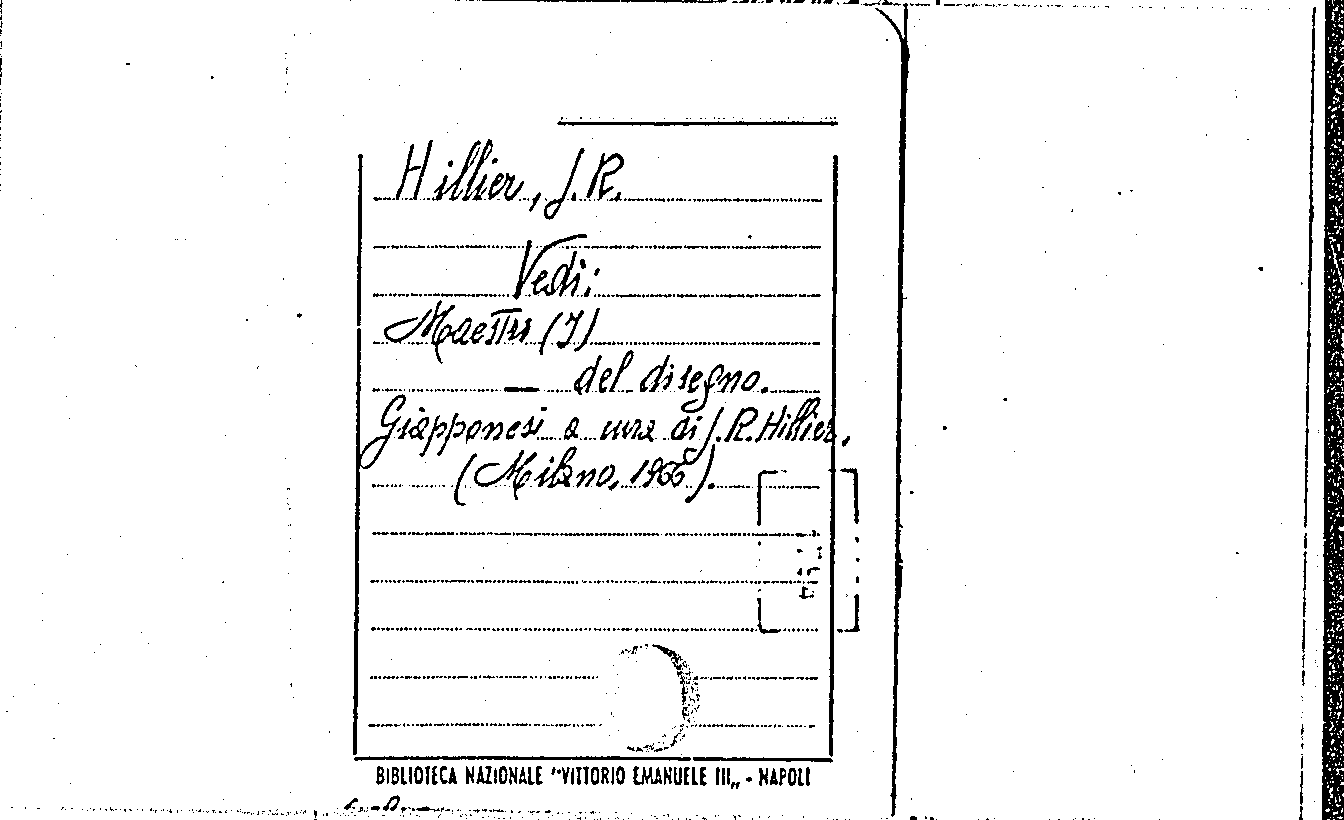 Hillier, J.R.
Vedi:
Maestri (I)
— del disegno.
Giapponesi a cura di J.R. Hillier.
(Milano, 1966).
BIBLIOTECA NAZIONALE "VITTORIO EMANUELE III„ - NAPOLI